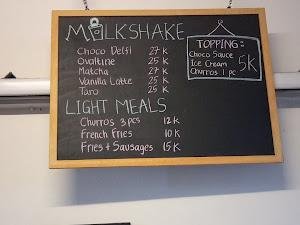 MILKSHAKE
Choco Delfi 27 K
Ovaltine 25 K
Matcha 27 K
Vanilla Latte 25 K
Taro 25 K
TOPPING:
Choco Sauce
Ice Cream
Churros 1 pc
5K
LIGHT MEALS
Churros 3 pcs 12 K
French Fries 10 K
Fries + Sausages 15 K